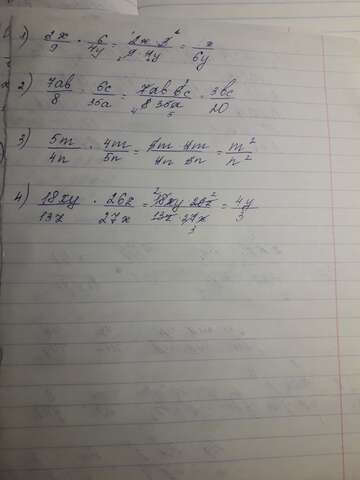 1) 2x/9 · 6/4y = 2x · 6/9 · 4y = x/6y
2) 7ab/8 · 6c/35a = 7ab 6c/8 35a = 3bc/20
3) 5m/4n · 4m/5n = 5m 4m/4n 5n = m²/n²
4) 18xy/13z · 26z/27x = 18xy 26z/13z 27x = 4y/3